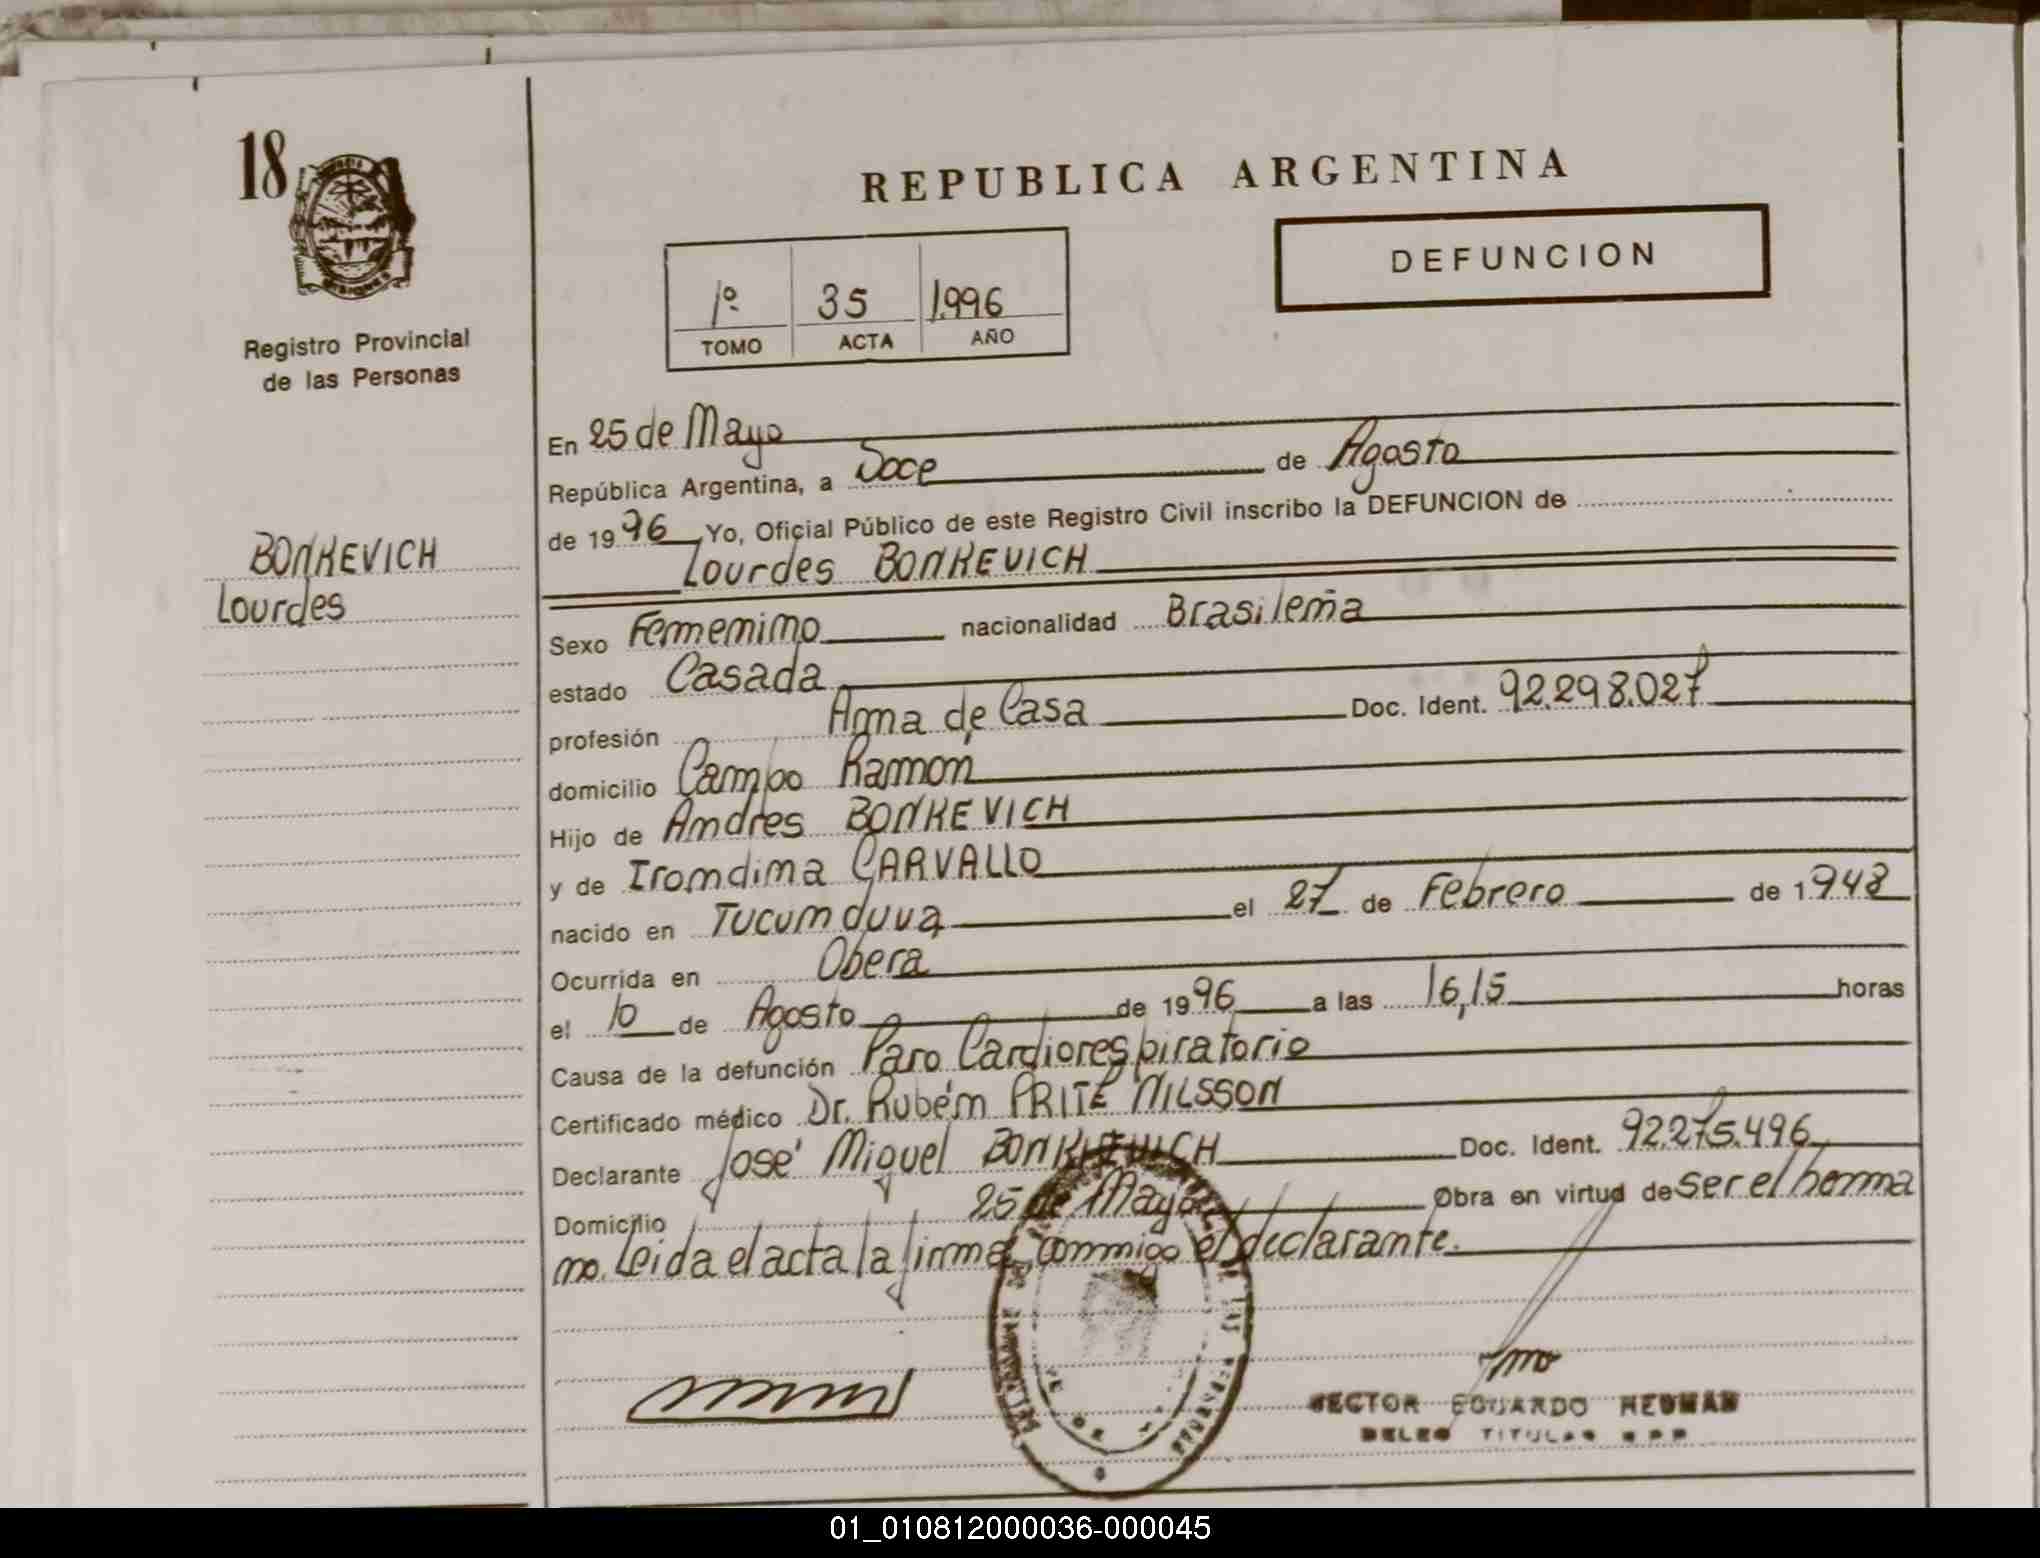 18
Registro Provincial
de las Personas
BONKEVICH
Lourdes
REPUBLICA ARGENTINA
DEFUNCION
1º 35 1.996
TOMO ACTA AÑO
En 25 de Mayo
República Argentina, a Doce de Agosto
de 1996 Yo, Oficial Público de este Registro Civil inscribo la DEFUNCION de
Lourdes BONKEVICH
Sexo Femenino nacionalidad Brasileña
estado Casada
profesión Ama de Casa Doc. Ident. 92.298.027
domicilio Campo Ramón
Hijo de Andres BONKEVICH
y de Irondina CARVALLO
nacido en Tucunduva el 27 de Febrero de 1948
Ocurrida en Obera
el 10 de Agosto de 1996 a las 16,15 horas
Causa de la defunción Paro Cardiorespiratorio
Certificado médico Dr. Rubén PRITE NILSSON
Declarante José Miguel BONKIEVICH Doc. Ident. 92.275.496
Domicilio 25 de Mayo Obra en virtud de ser el herma
no. Leida el acta la firma conmigo el declarante.
HECTOR EDUARDO NEUMAN
TITULAR
01_010812000036-000045